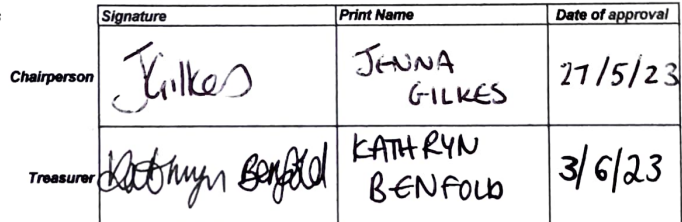 Signature Print Name Date of approval
Chairperson JGilkes JENNA GILKES 27/5/23
Treasurer Kathryn Benfold KATHRYN BENFOLD 3/6/23